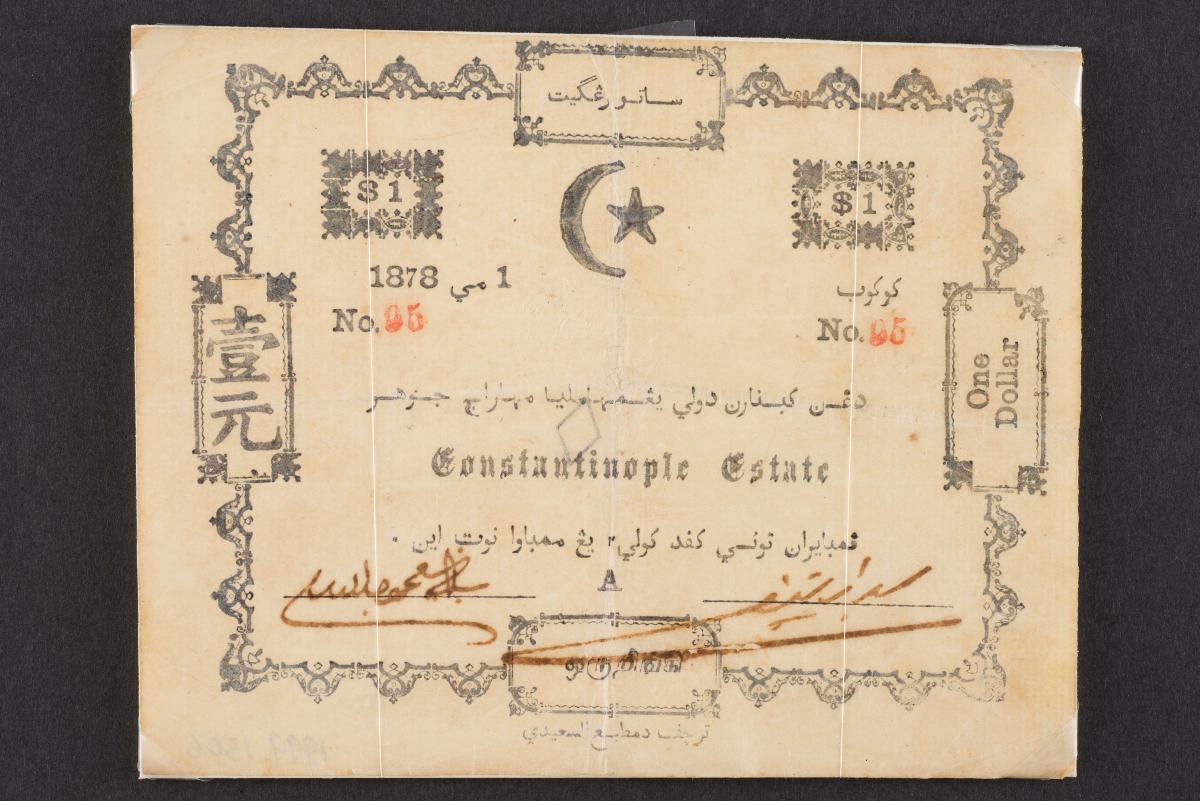 ساتو رڠگيت
$1
$1
1 مي 1878
كوكوب
No. 95
No. 95
壹元
One
Dollar
دڠن كبنارن دولي يڠمهاملياء مهاراج جوهر
Constantinople Estate
ڤمبايران توني كڤد كولي٢ يڠ ممباوا نوت اين .
A
ترچڤ دمطبع السعيدي